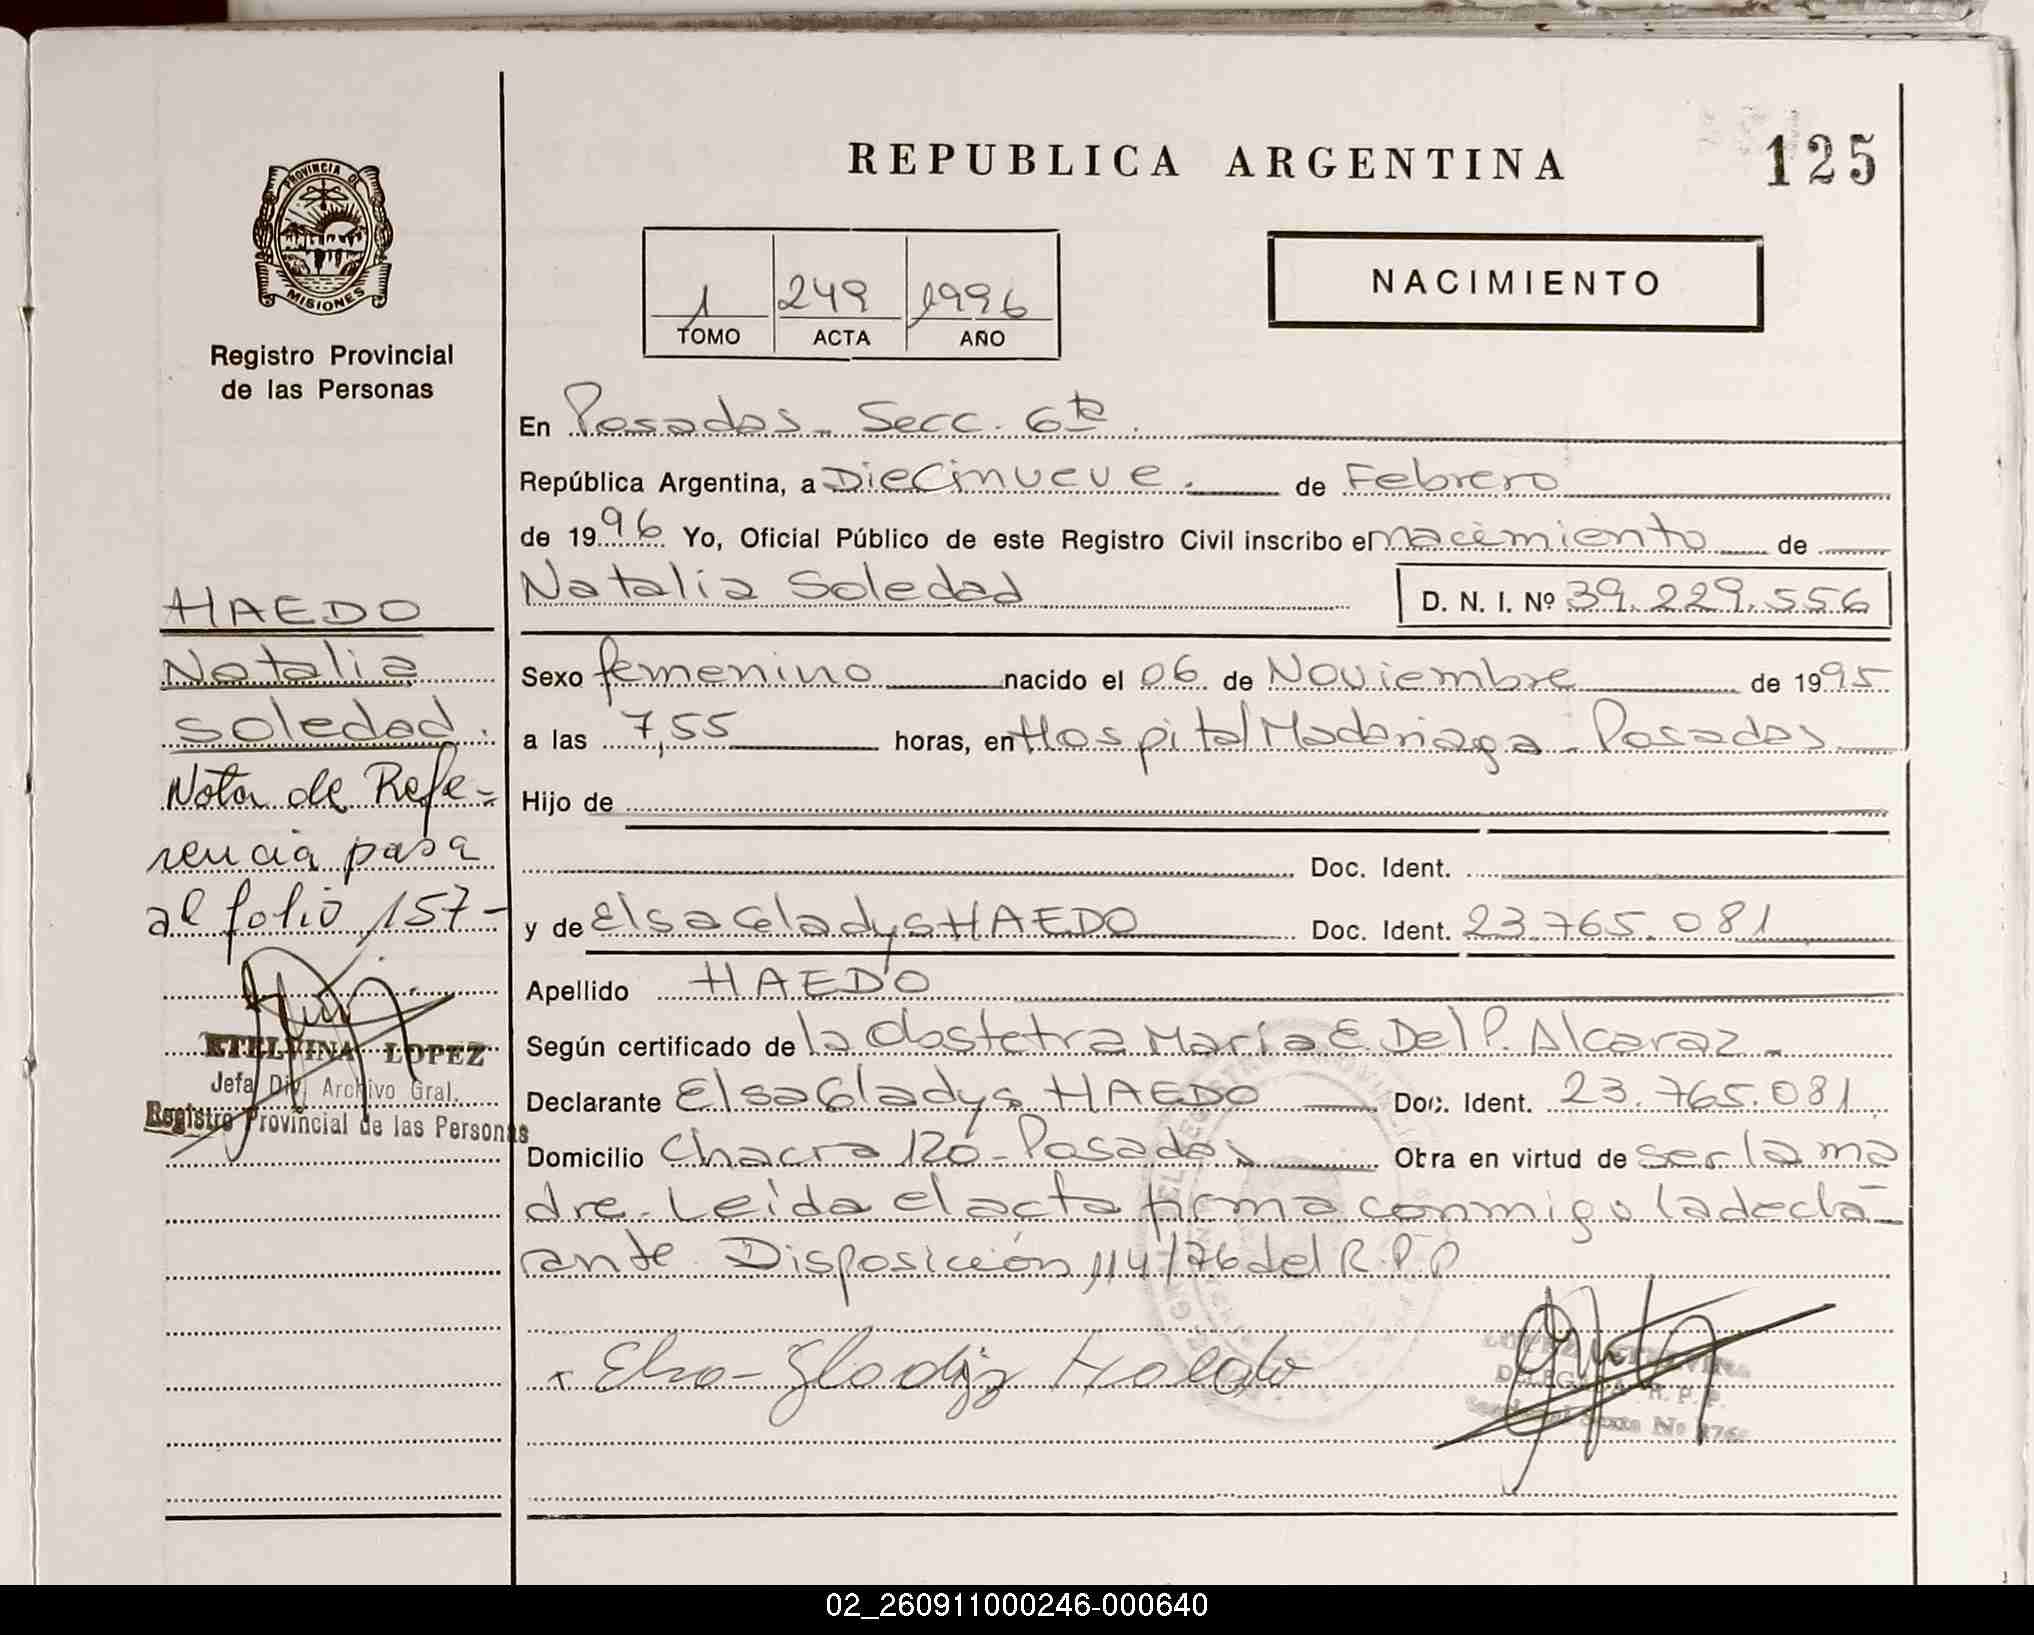 REPUBLICA ARGENTINA
125
PROVINCIA DE
MISIONES
Registro Provincial
de las Personas
NACIMIENTO
1 249 1996
TOMO ACTA AÑO
En Posadas - Secc. 6ta.
República Argentina, a Diecinueve. de Febrero
de 1996 Yo, Oficial Público de este Registro Civil inscribo el nacimiento de
Natalia Soledad D. N. I. Nº 39.229.556
Sexo femenino nacido el 06 de Noviembre de 1995
a las 7,55 horas, en Hospital Madariaga - Posadas
Hijo de
Doc. Ident.
y de Elsa Gladys HAEDO Doc. Ident. 23.765.081
Apellido HAEDO
Según certificado de la Obstetra María E. Del P. Alcaraz -
Declarante Elsa Gladys HAEDO Doc. Ident. 23.765.081
Domicilio Chacra 120 - Posadas Obra en virtud de ser la ma
dre. Leída el acta firma conmigo la decla-
rante. Disposición 114/76 del R.P.P
x Elsa - Gladiz Haedo
LOPEZ ETELVINA
DELEGADA R. P. P.
HAEDO
Natalia
Soledad.
Nota de Refe-
rencia pasa
al folio 157-
ETELVINA LOPEZ
Jefa Div. Archivo Gral.
Registro Provincial de las Personas
02_260911000246-000640